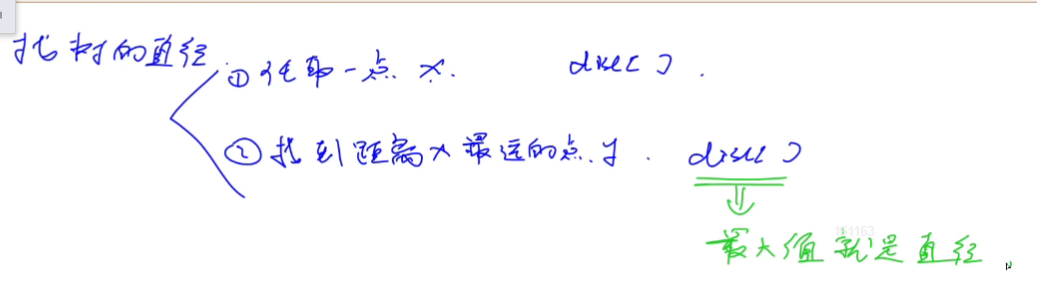 找树的直径
①任取一点 x. dist[ ] .
②找到距离x最远的点y . dist[ ]
最大值就是直径